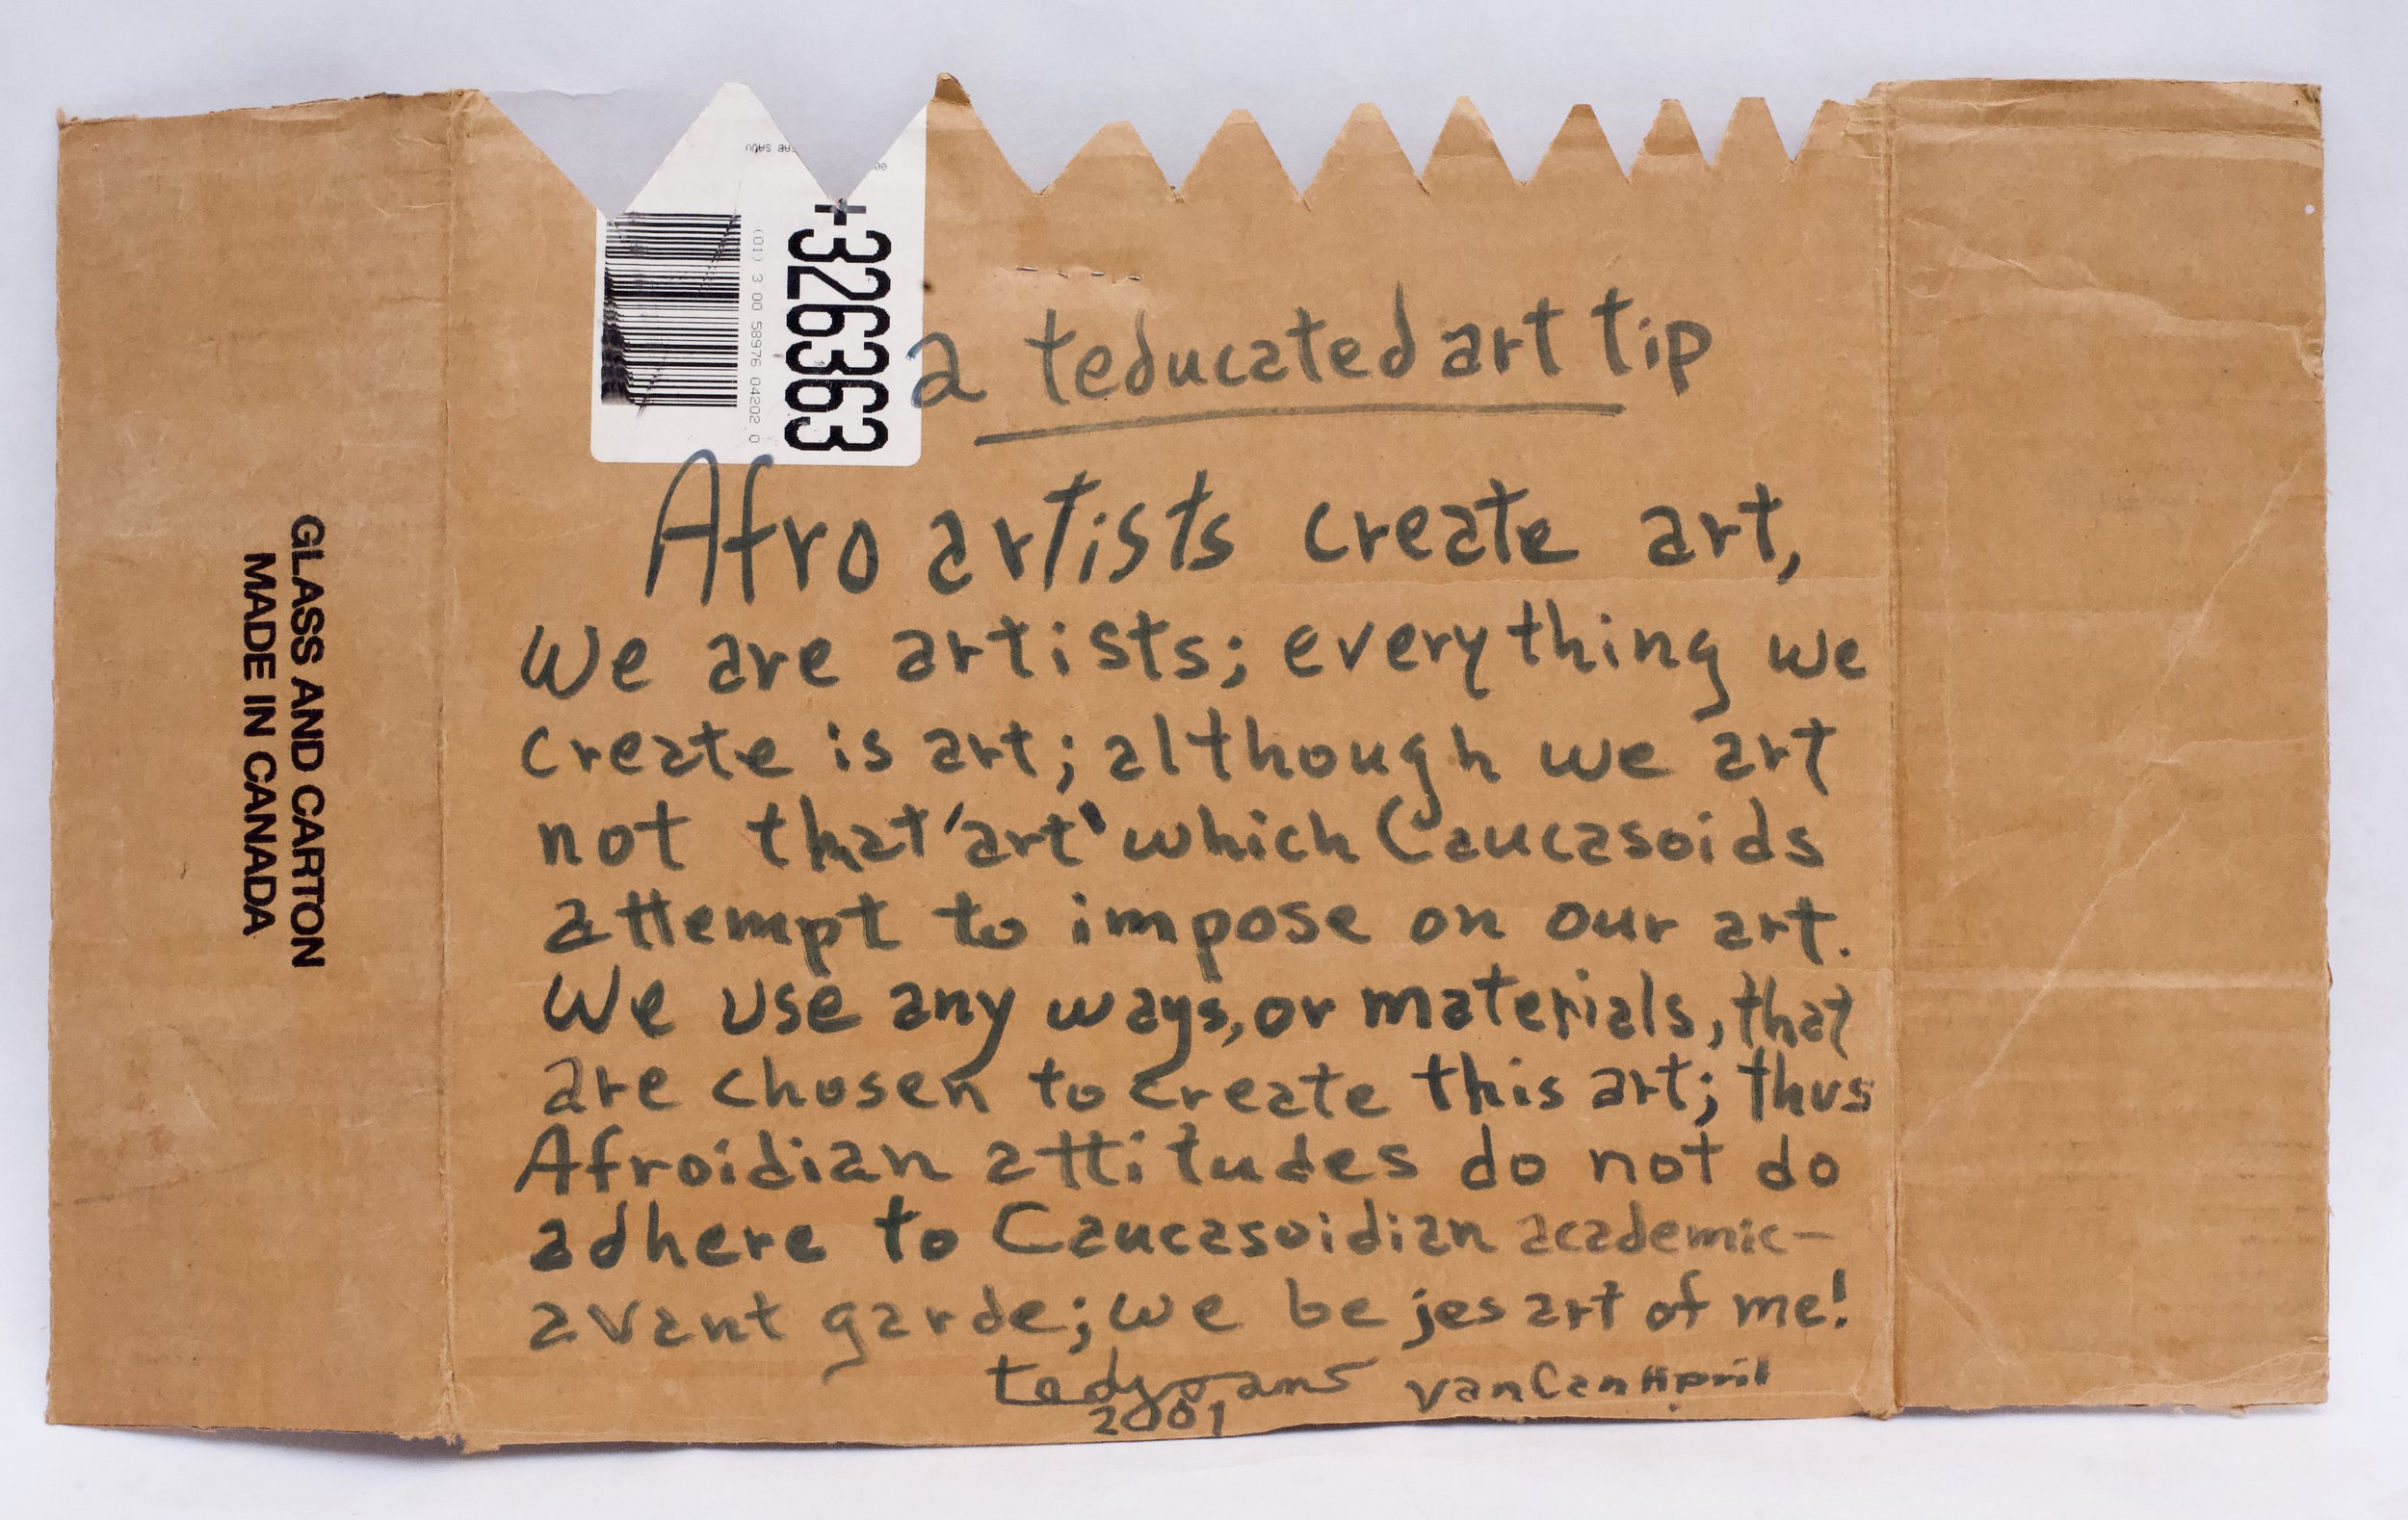 +326363
(01) 3 00 58976 04202 0
a teducated art tip
Afro artists create art,
We are artists; everything we
create is art; although we art
not that 'art' which Caucasoids
attempt to impose on our art.
We use any ways, or materials, that
are chosen to create this art; thus
Afroidian attitudes do not do
adhere to Caucasoidian academic-
avant garde; we be jes art of me!
ted joans vanCan April
2001
GLASS AND CARTON
MADE IN CANADA